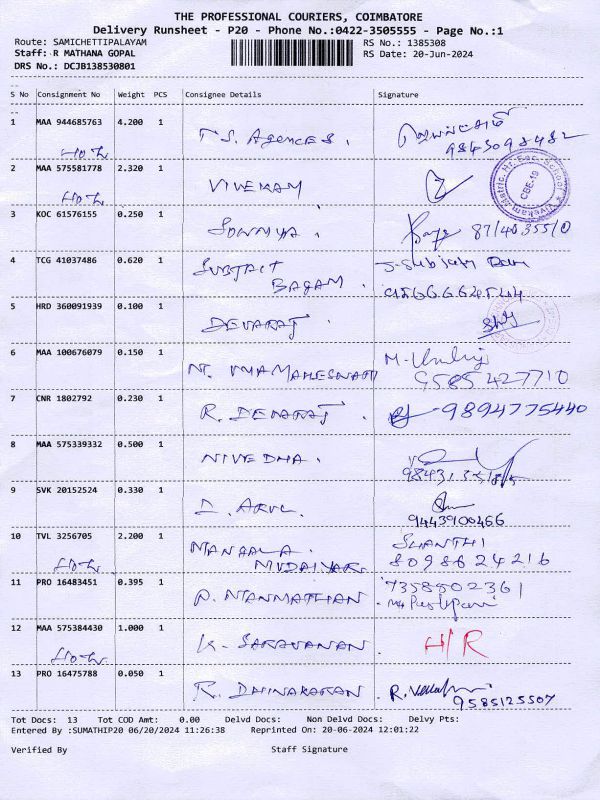 THE PROFESSIONAL COURIERS, COIMBATORE
Delivery Runsheet - P20 - Phone No.:0422-3505555 - Page No.:1
Route: SAMICHETTIPALAYAM RS No.: 1385308
Staff: R MATHANA GOPAL RS Date: 20-Jun-2024
DRS No.: DCJB138530801
S No Consignment No Weight PCS Consignee Details Signature
1 MAA 944685763 4.200 1 T.S. Agences.
9843098482
2 MAA 575581778 2.320 1 VIVEKAM
CBE-19
3 KOC 61576155 0.250 1 SOWMYA.
4 TCG 41037486 0.620 1 SUBJAIT
BAGAM.
5 HRD 360091939 0.100 1 DEVARAJ.
6 MAA 100676079 0.150 1 M.
9585427710
7 CNR 1802792 0.230 1 R. DEVARAJ. 9894775440
8 MAA 575339332 0.500 1 NIVEDHA.
9 SVK 20152524 0.330 1 I. ARUL.
9443900466
10 TVL 3256705 2.200 1 SHANTHI
MUDALIYAR. 8098624216
11 PRO 16483451 0.395 1 P. MANMATHAN 7358502361
12 MAA 575384430 1.000 1 K. SARAVANAN. H/R
13 PRO 16475788 0.050 1 R. DHINAKARAN R.
9585125507
Tot Docs: 13 Tot COD Amt: 0.00 Delvd Docs: Non Delvd Docs: Delvy Pts:
Entered By :SUMATHIP20 06/20/2024 11:26:38 Reprinted On: 20-06-2024 12:01:22
Verified By Staff Signature